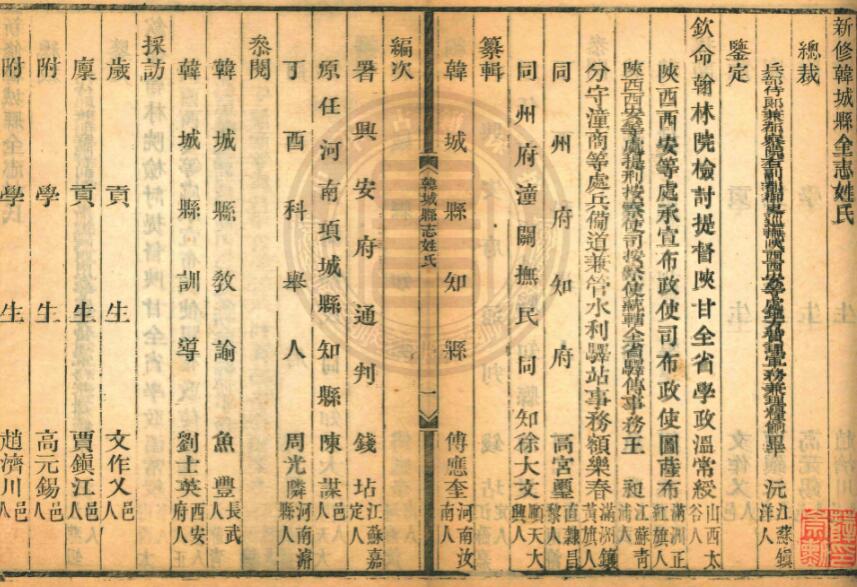 新修韓城縣全志姓氏
總裁
兵部侍郎兼都察院右副都御史巡撫陝西西安等處地方贊理軍務兼理糧餉畢沅 江蘇鎮洋人
鑒定
欽命翰林院檢討提督陝甘全省學政溫常綬 山西太谷人
陝西西安等處承宣布政使司布政使圖薩布 滿洲正紅旗人
陝西西安等處提刑按察使司按察使統轄全省驛傳事務王昶 江蘇青浦人
分守潼商等處兵備道兼管水利驛站事務額樂春 滿洲鑲黃旗人
同州府知府高宮璽 直隸昌黎人
同州府潼關撫民同知徐大文 順天大興人
纂輯
韓城縣知縣傅應奎 河南汝南人
韓城縣志姓氏 一
編次
署興安府通判錢坫 江蘇嘉定人
原任河南項城縣知縣陳謀 邑人
丁酉科舉人周光隣 河南濬縣人
叅閱
韓城縣敎諭魚豐 長武人
韓城縣訓導劉士英 西安府人
採訪
歲貢生文作乂 邑人
廩貢生賈鎮江 邑人
附學生高元錫 邑人
附學生趙濟川 邑人